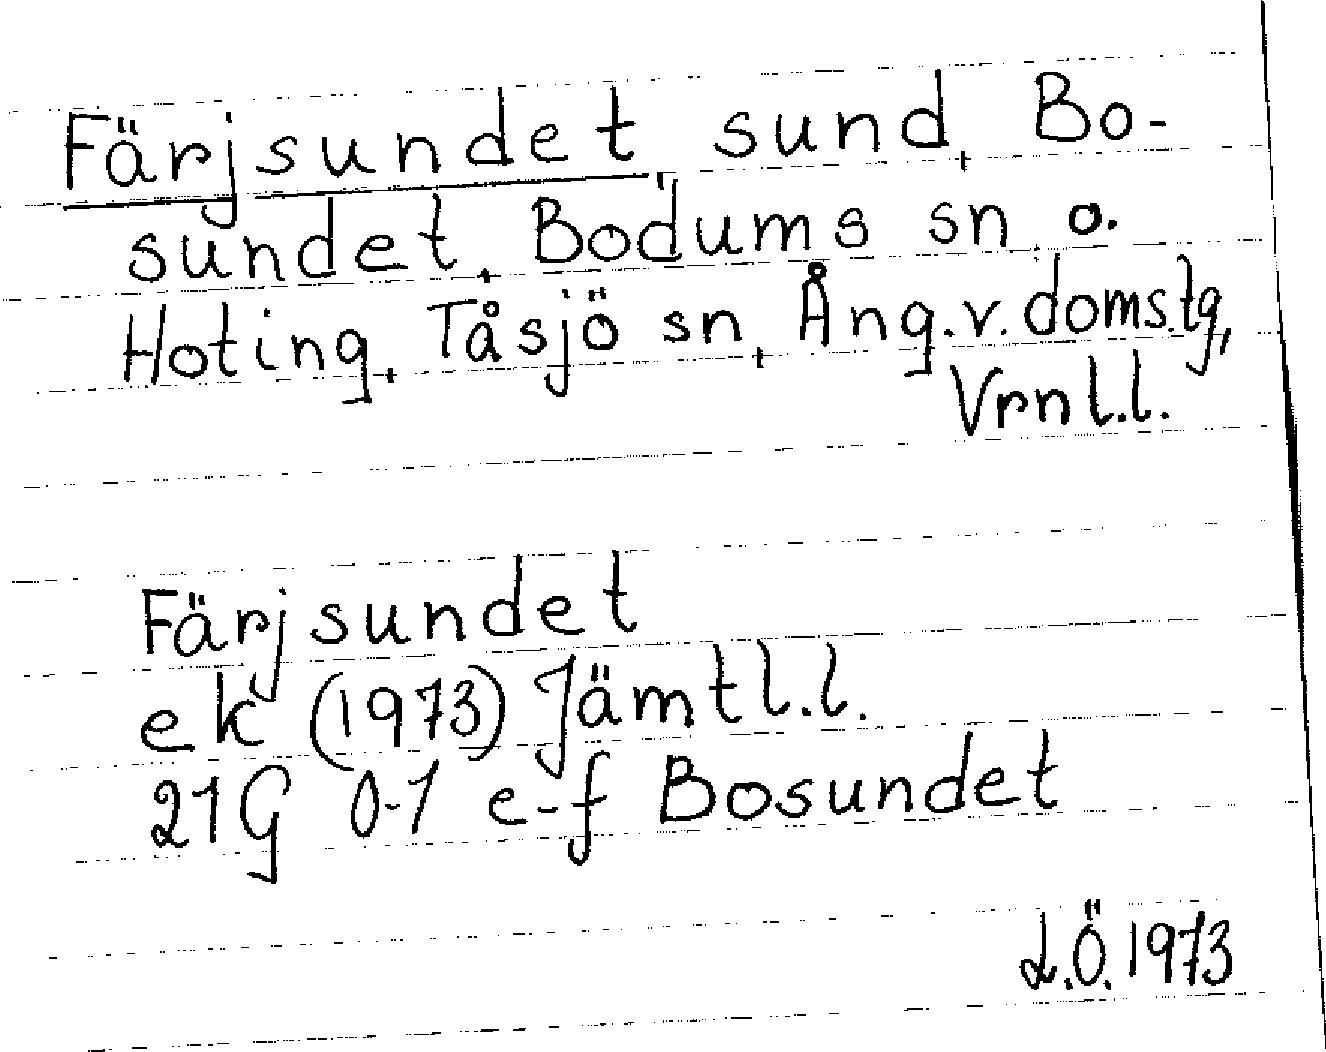 Färjsundet sund, Bo-
sundet, Bodums sn o.
Hoting, Tåsjö sn, Ång.v. doms.tg,
Vrnl.l.
Färjsundet
ek (1973) Jämtl.l.
21G 0-1 e-f Bosundet
L.Ö. 1973